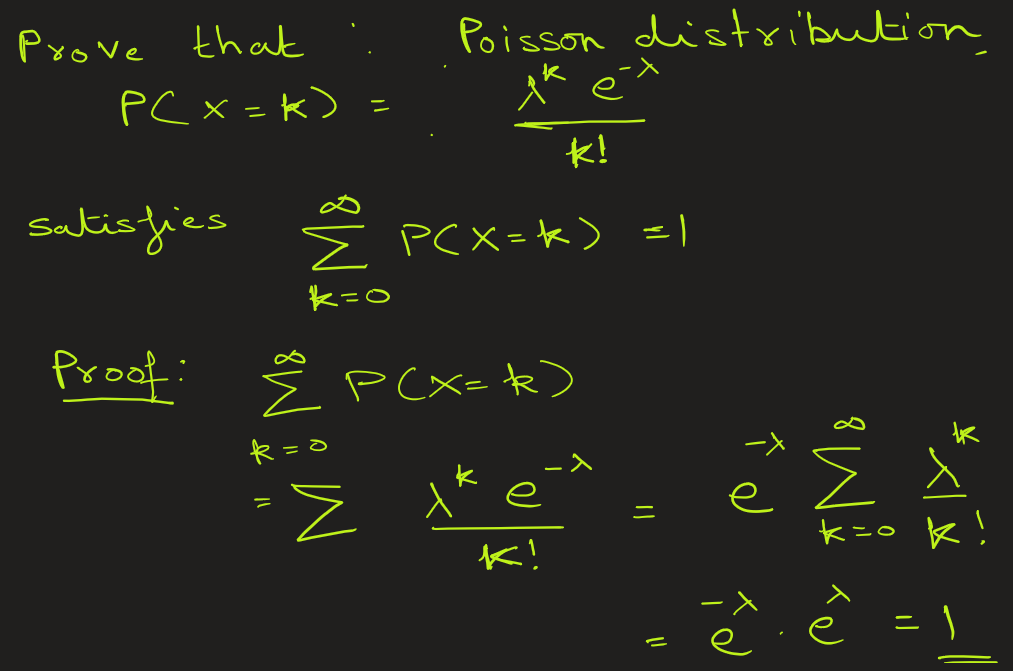 Prove that : Poisson distribution,
P(X=k) = λ^k e^-λ / k!
satisfies ∞∑k=0 P(X=k) = 1
Proof: ∞∑k=0 P(X=k)
= ∑ λ^k e^-λ / k! = e^-λ ∞∑k=0 λ^k / k!
= e^-λ . e^λ = 1